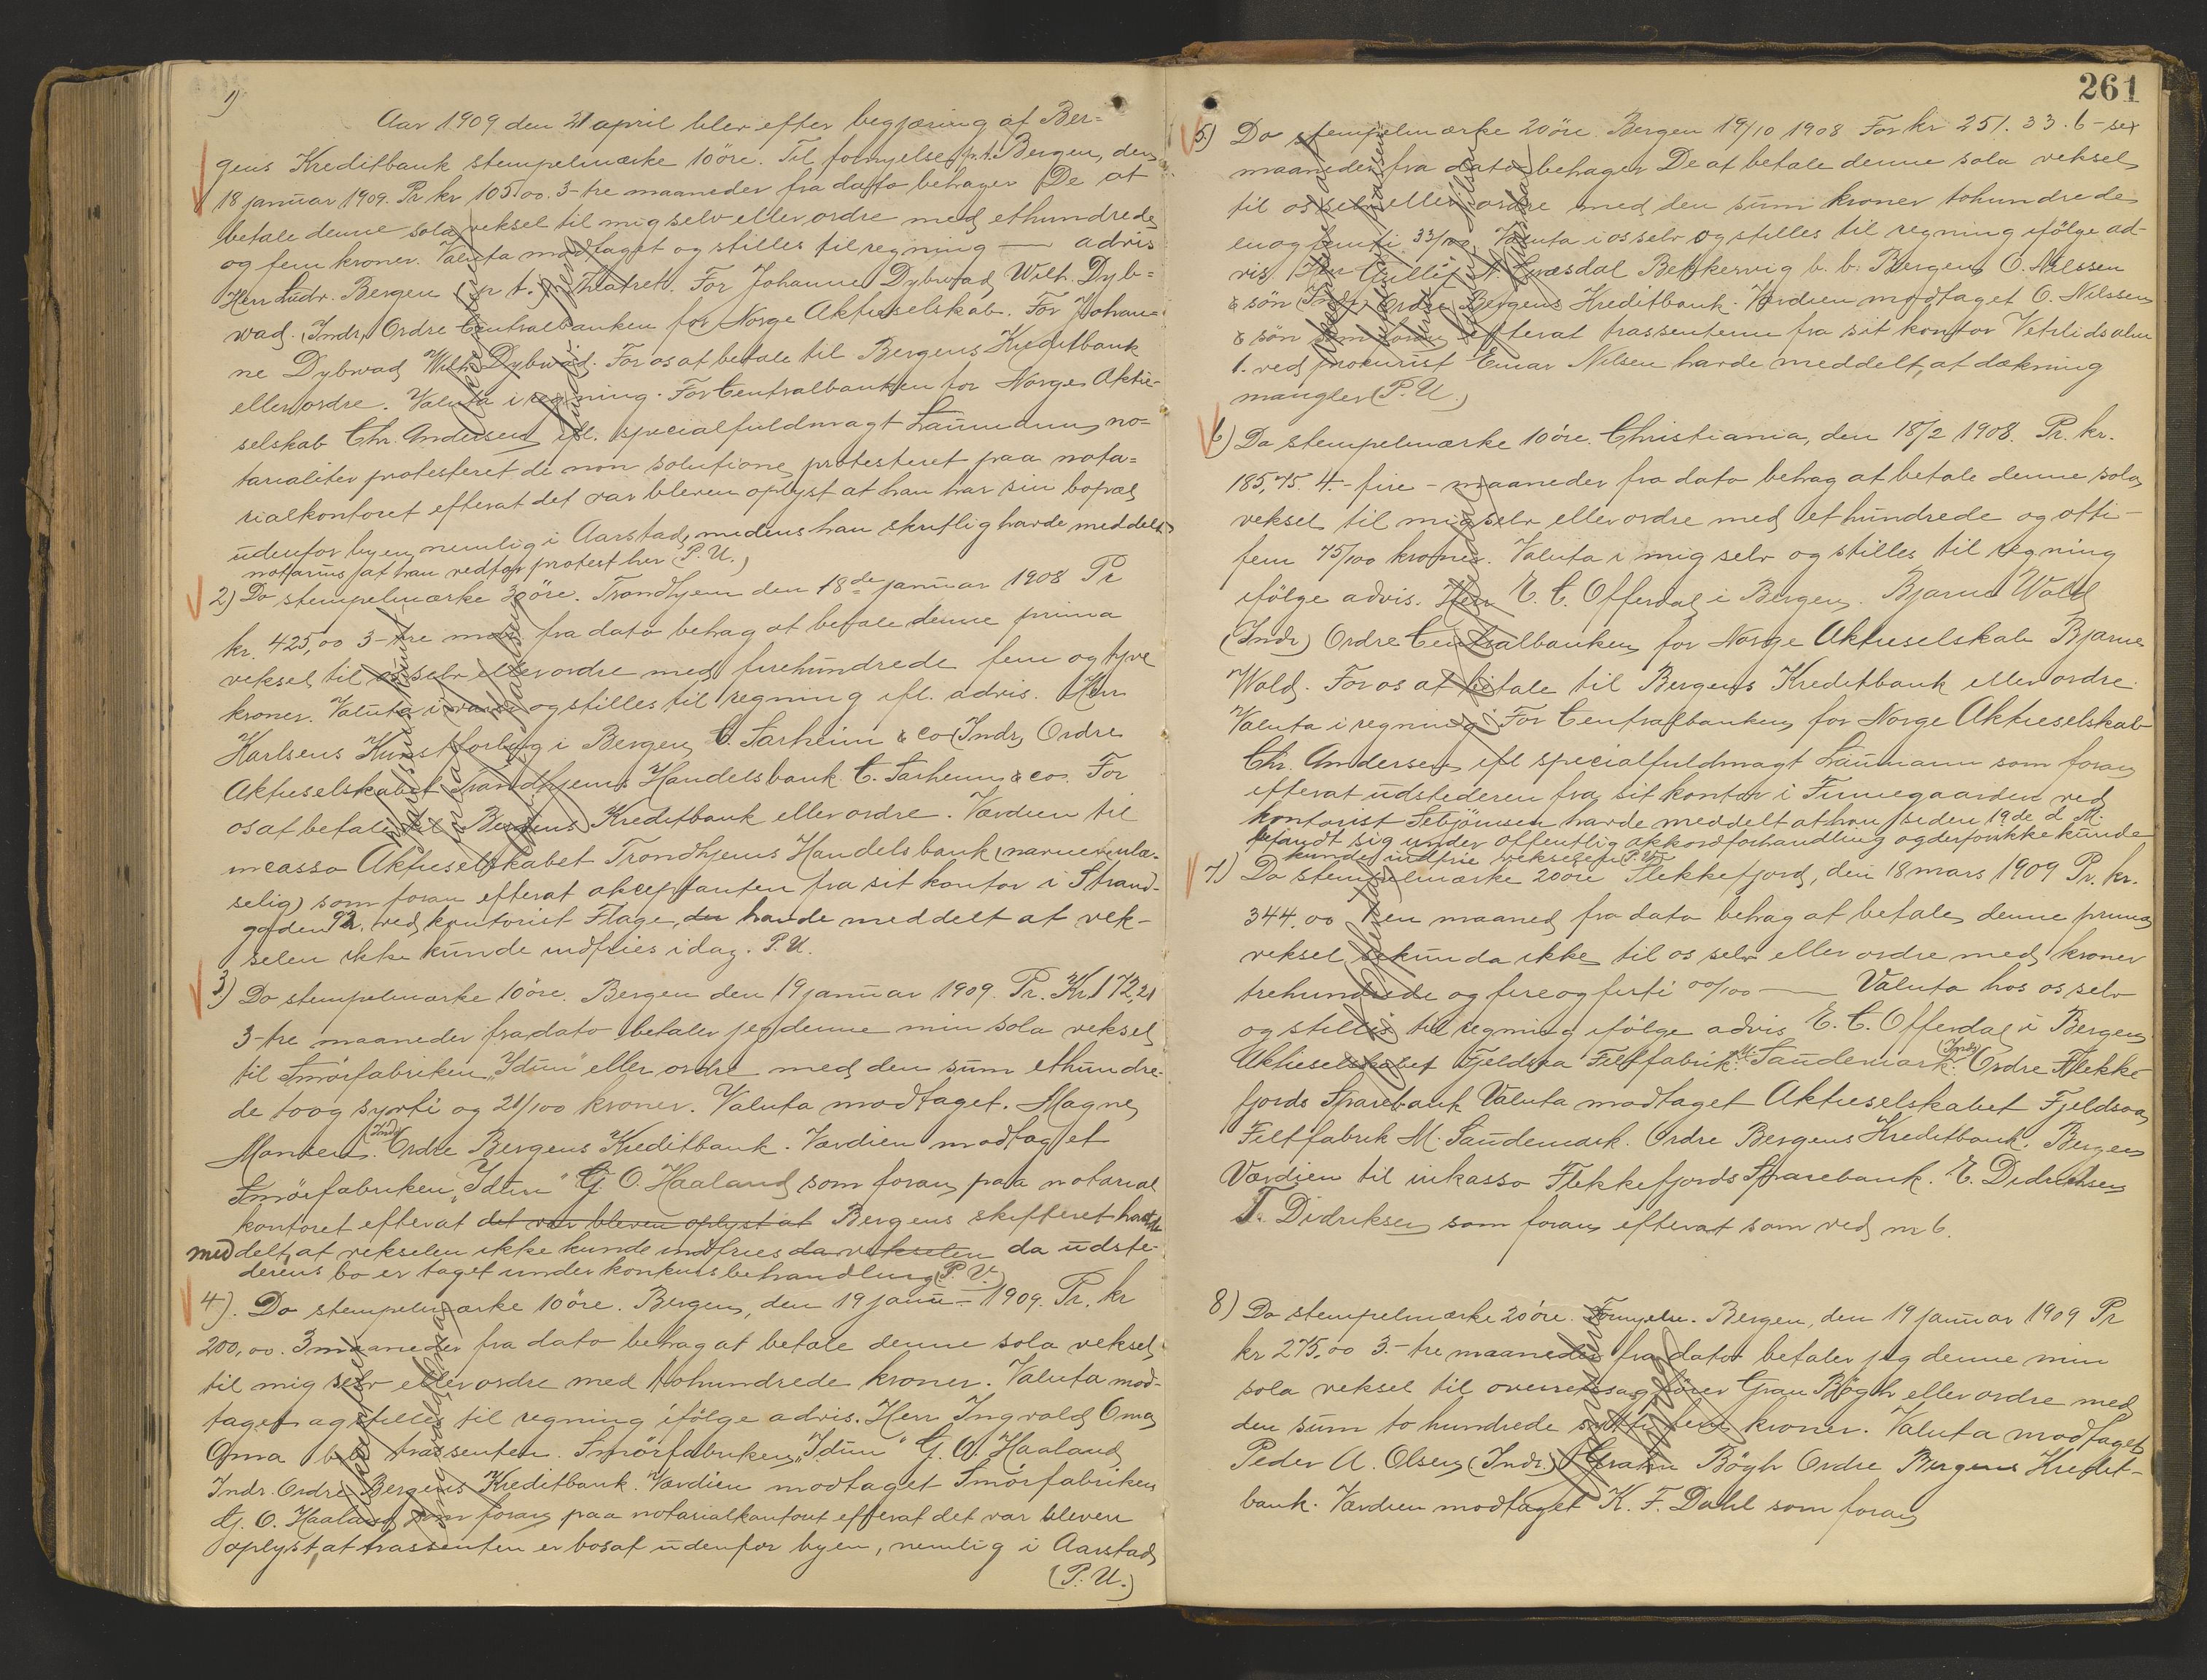 1)
Aar 1909 den 21 april blev efter begjæring af Ber=
gens Kreditbank stempelmærke 10 öre. Til fornyelse p.t. Bergen, den
18 januar 1909. Pr kr 105.00. 3-tre maaneder fra dato behager De at
betale denne sola veksel til mig selv eller ordre med ethundrede
og fem kroner. Valuta modtaget og stilles til regning — advis
Herr Ludv. Bergen p t. Theatret. For Johanne Dybwad Wilh. Dyb=
wad. (Indr) Ordre Centralbanken for Norge Aktieselskab. For Johan=
ne Dybwad Wilh Dybwad. For os at betale til Bergens Kreditbank
eller ordre. Valuta i regning. For Centralbanken for Norge Aktie-
selskab Chr. Andersen ifl. specialfuldmagt Laumann no=
tarialiter protesteret de non solutione protesteret paa nota=
rialkontoret efterat det var bleven oplyst at han har sin bopæl
udenfor byen, nemlig i Aarstad, medens han skriftlig havde meddelt
notarius, at han vedtog protest her (P.U.)
2) Do stempelmærke 30 öre. Trondhjem den 18de januar 1908 Pr
kr. 425,00 3-tre mdr fra dato behag at betale denne prima
veksel til os selv eller ordre med firehundrede fem og tyve
kroner. Valuta i varer og stilles til regning ifl. advis. Herr
Karlsens Kunstforlag i Bergen C. Sarheim & Co (Indr) Ordre
Aktieselskabet Trondhjems Handelsbank C. Sarheim & co. For
os at betale til Bergens Kreditbank eller ordre. Værdien til
incasso Aktieselskabet Trondhjems Handelsbank (navne ulæ-
selig) som foran efterat akceptanten fra sit kontor i Strand-
gaden 92. ved kontorist Flage, der havde meddelt at vek-
selen ikke kunde indfries idag. P.U.
3) Do stempelmærke 10 öre. Bergen den 19 januar 1909. Pr. Kr. 172,21
3-tre maaneder fra dato betaler jeg denne min sola veksel
til Smörfabriken "Idun" eller ordre med den sum ethundre-
de toog sytti og 21/100 kroner. Valuta modtaget. Magne
Monsen. (Indr) Ordre Bergens Kreditbank. Værdien modtaget
Smörfabriken "Idun" G. O. Haaland som foran paa notarial
kontoret efterat det var bleven oplyst at Bergens skifteret havde
meddelt, at vekselen ikke kunde indfries da vekselen da udste-
derens bo er taget under konkursbehandling (P.U.)
4). Do stempelmærke 10 öre. Bergen, den 19 janu - 1909. Pr. kr
200,00. 3 maaneder fra dato behag at betale denne sola veksel
til mig selv eller ordre med tohundrede kroner. Valuta mod-
taget og stilles til regning ifölge advis. Herr Ingvald Oma
Oma trassenten. Smörfabriken "Idun" G. O. Haaland
Indr. Ordre Bergens Kreditbank. Værdien modtaget Smörfabriken
G. O. Haaland som foran paa notarialkontoret efterat det var bleven
oplyst, at trassenten er bosat udenfor byen, nemlig i Aarstad
(P.U.)
261
5) Do stempelmærke 20 öre. Bergen 19/10 1908 For kr 251.33. 6-sex
maaneder fra dato behager De at betale denne sola veksel
til os selv eller ordre med den sum kroner tohundrede
enogfemti 33/100. Valuta i os selv og stilles til regning ifölge ad-
vis. Bergen O. Nilssen
& sön (Indr) Ordre Bergens Kreditbank. Værdien modtaget O. Nilssen
& sön som foran efterat trassenterne fra sit kontor Vetrlidsalm
1. ved prokurist Einar Nilsen havde meddelt, at dækning
mangler (P.U.)
6) Do stempelmærke 10 öre. Christiania, den 18/2 1908. Pr. kr.
185,75. 4.-fire - maaneder fra dato behag at betale denne sola
veksel til mig selv eller ordre med et hundrede og otti-
fem 75/100 kroner. Valuta i mig selv og stilles til regning
ifölge advis. Herr E. C. Offerdal i Bergen. Bjarne Wold
(Indr) Ordre Centralbanken for Norge Aktieselskab Bjarne
Wold. For os at betale til Bergens Kreditbank eller ordre.
Valuta i regning. For Centralbanken for Norge Aktieselskab
Chr. Andersen ifl specialfuldmagt Laumann som foran
efterat udstederen fra sit kontor i Finnegaarden ved
kontorist Sebjörnsen havde meddelt at han siden 19de d M.
befandt sig under offentlig akkordforhandling og derfor ikke kunde
kunde indfrie vekselen P.U.
7.) Do stempelmærke 20 öre Flekkefjord, den 18 mars 1909 Pr. kr.
344.00 1 en maaned fra dato behag at betale denne prima
veksel sekunda ikke til os selv eller ordre med kroner
trehundrede og fireogfirti 00/100 — Valuta hos os selv
og stilles til regning ifölge advis E. C. Offerdal i Bergen
Aktieselskabet Fjeldsaa Filtfabrik M. Saudemark. (Indr) Ordre Flekke-
fjords Sparebank Valuta modtaget Aktieselskabet Fjeldsaa
Filtfabrik M. Saudemark. Ordre Bergens Kreditbank. Bergen
Værdien til inkasso Flekkefjords Sparebank. E. Didriksen
T. Didriksen som foran efterat som ved nr 6.
8) Do stempelmærke 20 öre. Fornyelse. Bergen, den 19 januar 1909 Pr
kr 275.00 3.-tre maaneder fra dato betaler jeg denne min
sola veksel til overretssagförer Gran Bögh eller ordre med
den sum to hundrede sytti fem kroner. Valuta modtaget
Peder A. Olsen (Indr) Gran Bögh Ordre Bergens Kredit-
bank. Værdien modtaget K. F. Dahl som foran